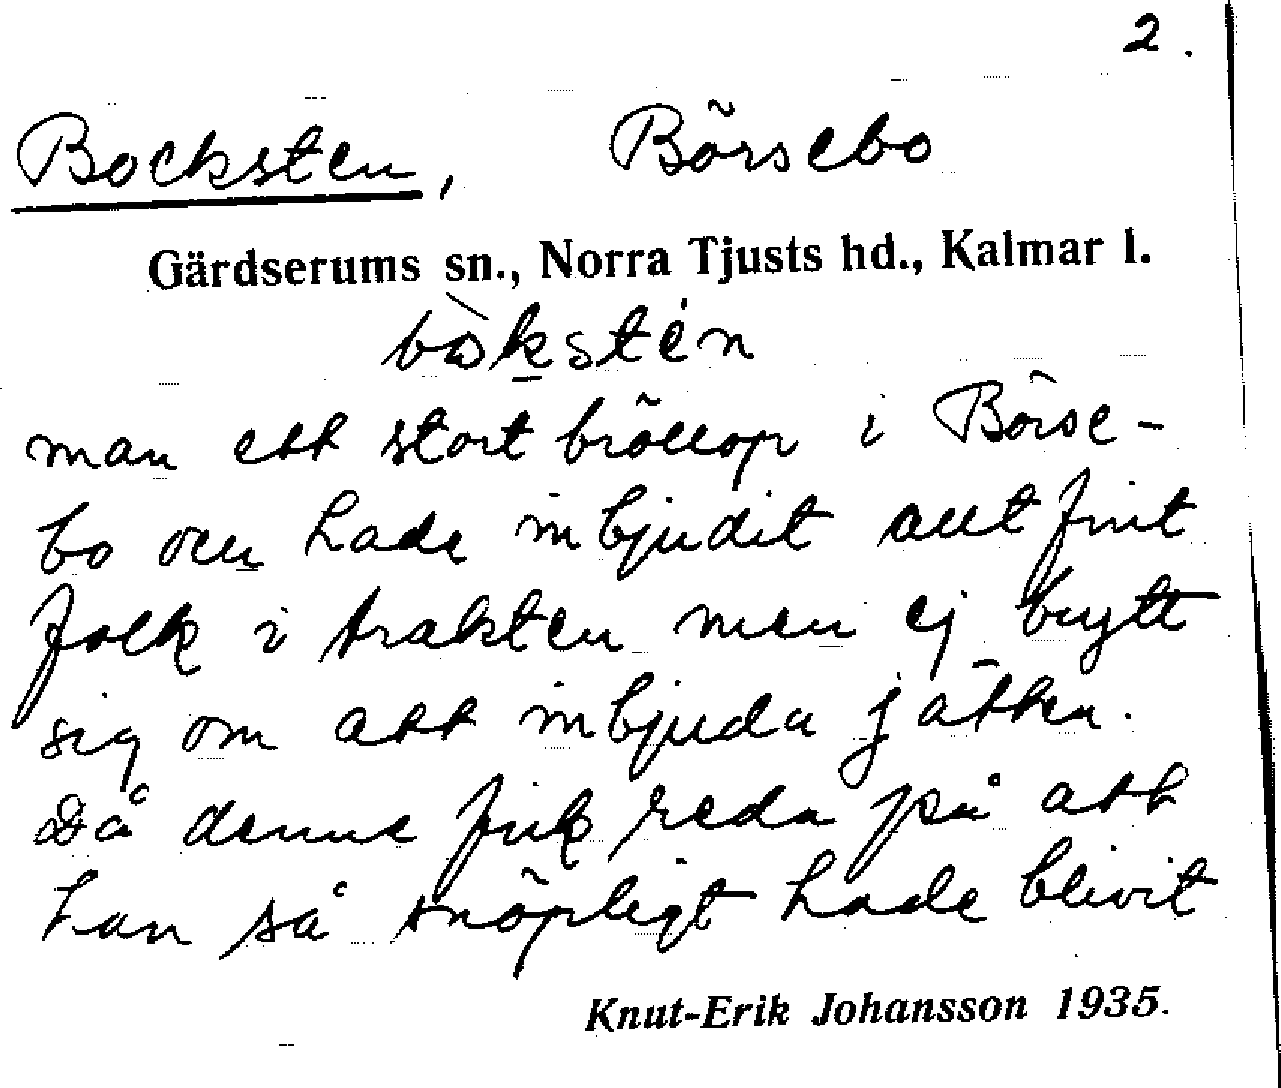 2.
Bocksten, Börsebo
Gärdserums sn., Norra Tjusts hd., Kalmar l.
bòkstén
man ett stort bröllop i Börse-
bo och hade inbjudit allt fint
folk i trakten men ej brytt
sig om att inbjuda jätten.
Då denne fick reda på att
han så snöpligt hade blivit
Knut-Erik Johansson 1935.